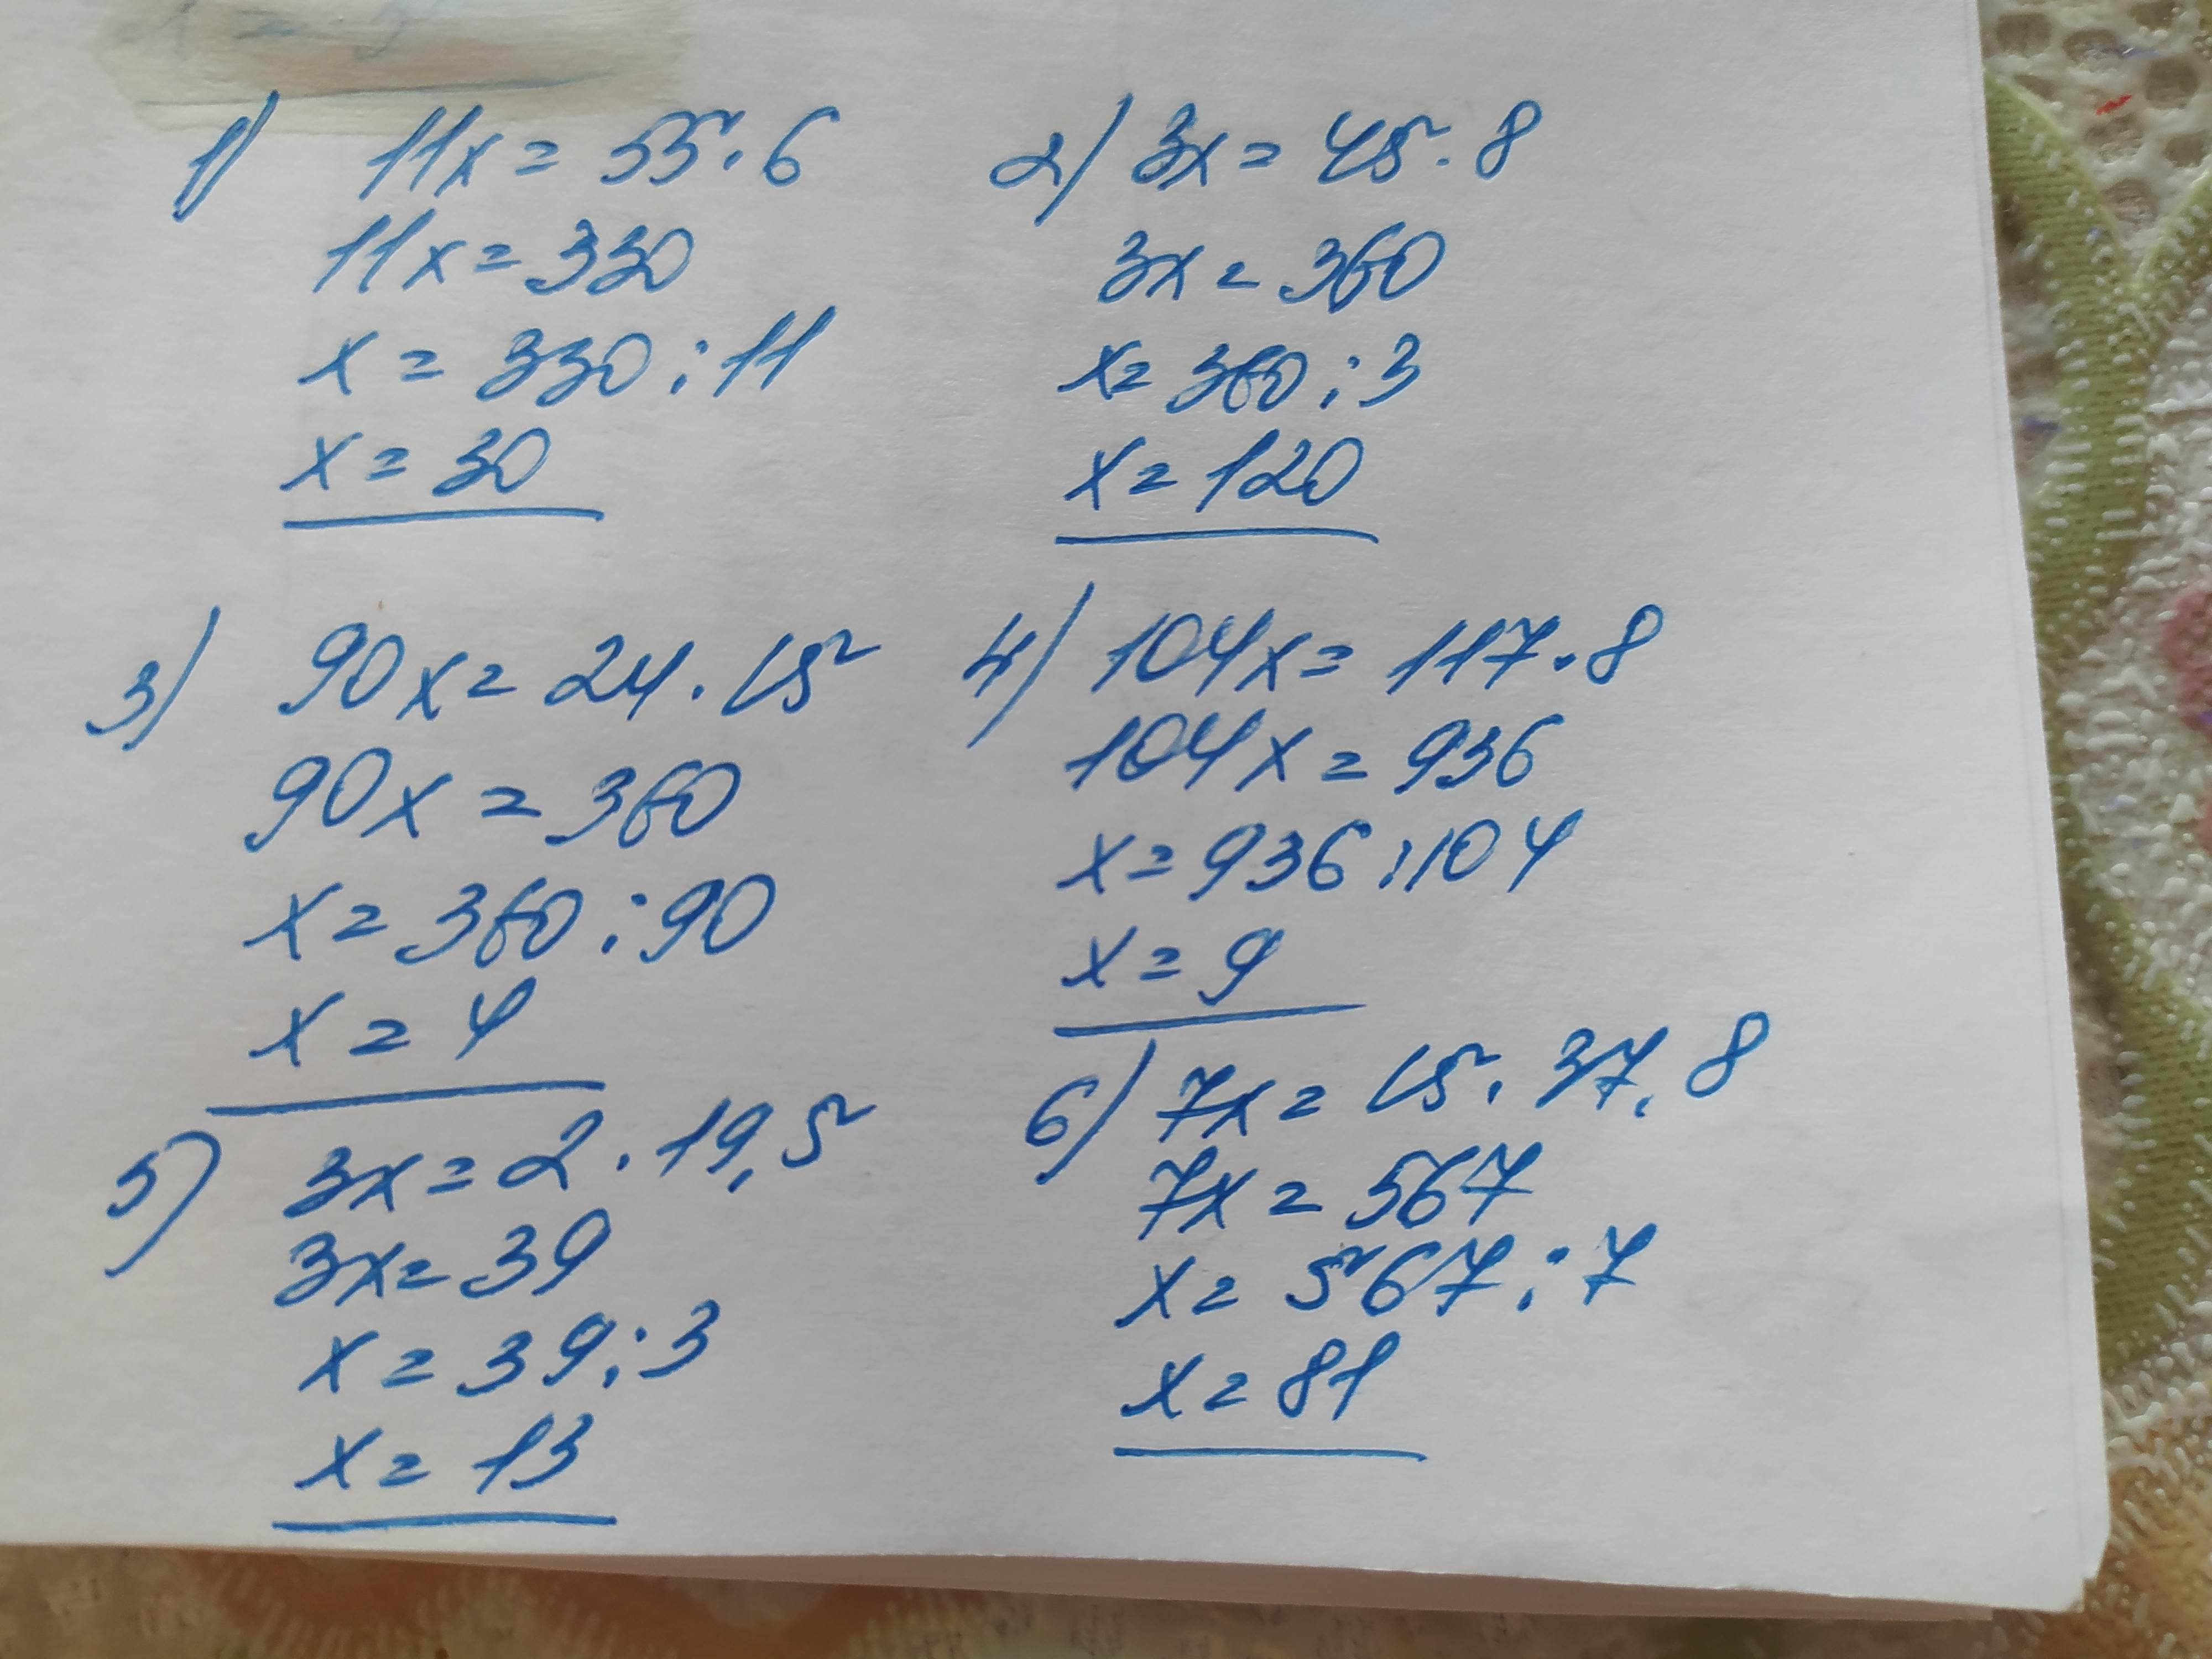 1) 11x = 55 · 6
11x = 330
x = 330 : 11
x = 30
2) 3x = 45 · 8
3x = 360
x = 360 : 3
x = 120
3) 90x = 24 · 15
90x = 360
x = 360 : 90
x = 4
4) 104x = 117 · 8
104x = 936
x = 936 : 104
x = 9
5) 3x = 2 · 19,5
3x = 39
x = 39 : 3
x = 13
6) 7x = 15 · 37,8
7x = 567
x = 567 : 7
x = 81